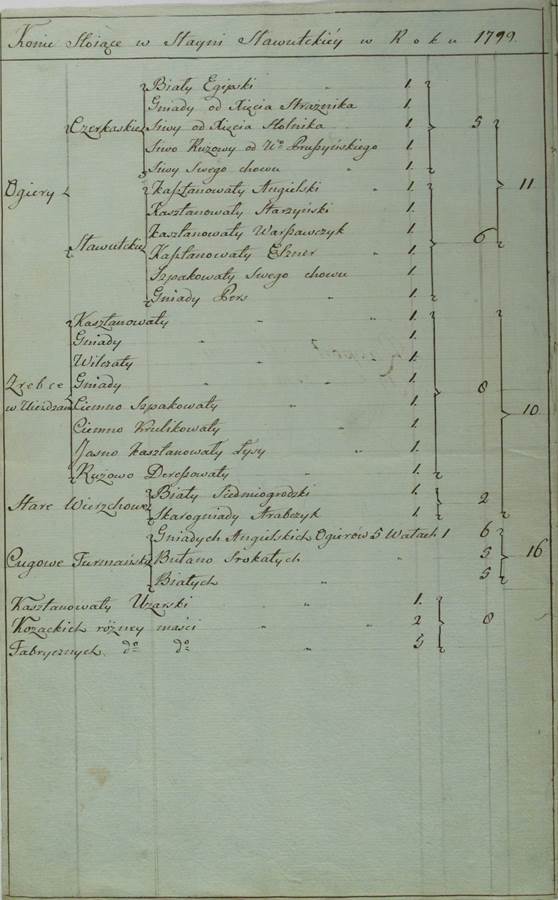 Konie Stoiące w Stayni Sławutckiéy w Roku 1799.
Biały Egipski " 1.
Gniady od Xięcia Strażnika 1.
Czerkaskie Siwy od Xięcia Stolnika 1. 5
Siwo Ruzowy od Uo Pruszyńskiego 1.
Siwy Swego chowu " 1.
Ogiery Kasztanowaty Angielski " 1. 11
Kasztanowaty Starzyński 1.
Kasztanowaty Warszawczyk 1.
Sławutckie Kasztanowaty Elsner " 1. 6
Szpakowaty Swego chowu 1.
Gniady Pers " 1.
Kasztanowaty " " 1.
Gniady " " 1.
Wilczaty " 1.
Zrebce Gniady " " 1. 8
w Uieżdzaniu Ciemno Szpakowaty " 1. 10
Ciemno Krulikowaty 1.
Jasno Kasztanowaty Łysy " 1.
Ruzowo Dereszowaty " 1.
Stare Wierzchowe Biały Siedmiogrodzki 1. 2
Skarogniady Arabczyk 1.
Gniadych Angielskich Ogierów 5 Wałach 1 6
Cugowe Furmańskie Bułano Srokatych " 5 16
Białych " 5
Kasztanowaty Uzarski " 1.
Kozackich rózney maści " " 2 8
Fabrycznych do do " 5